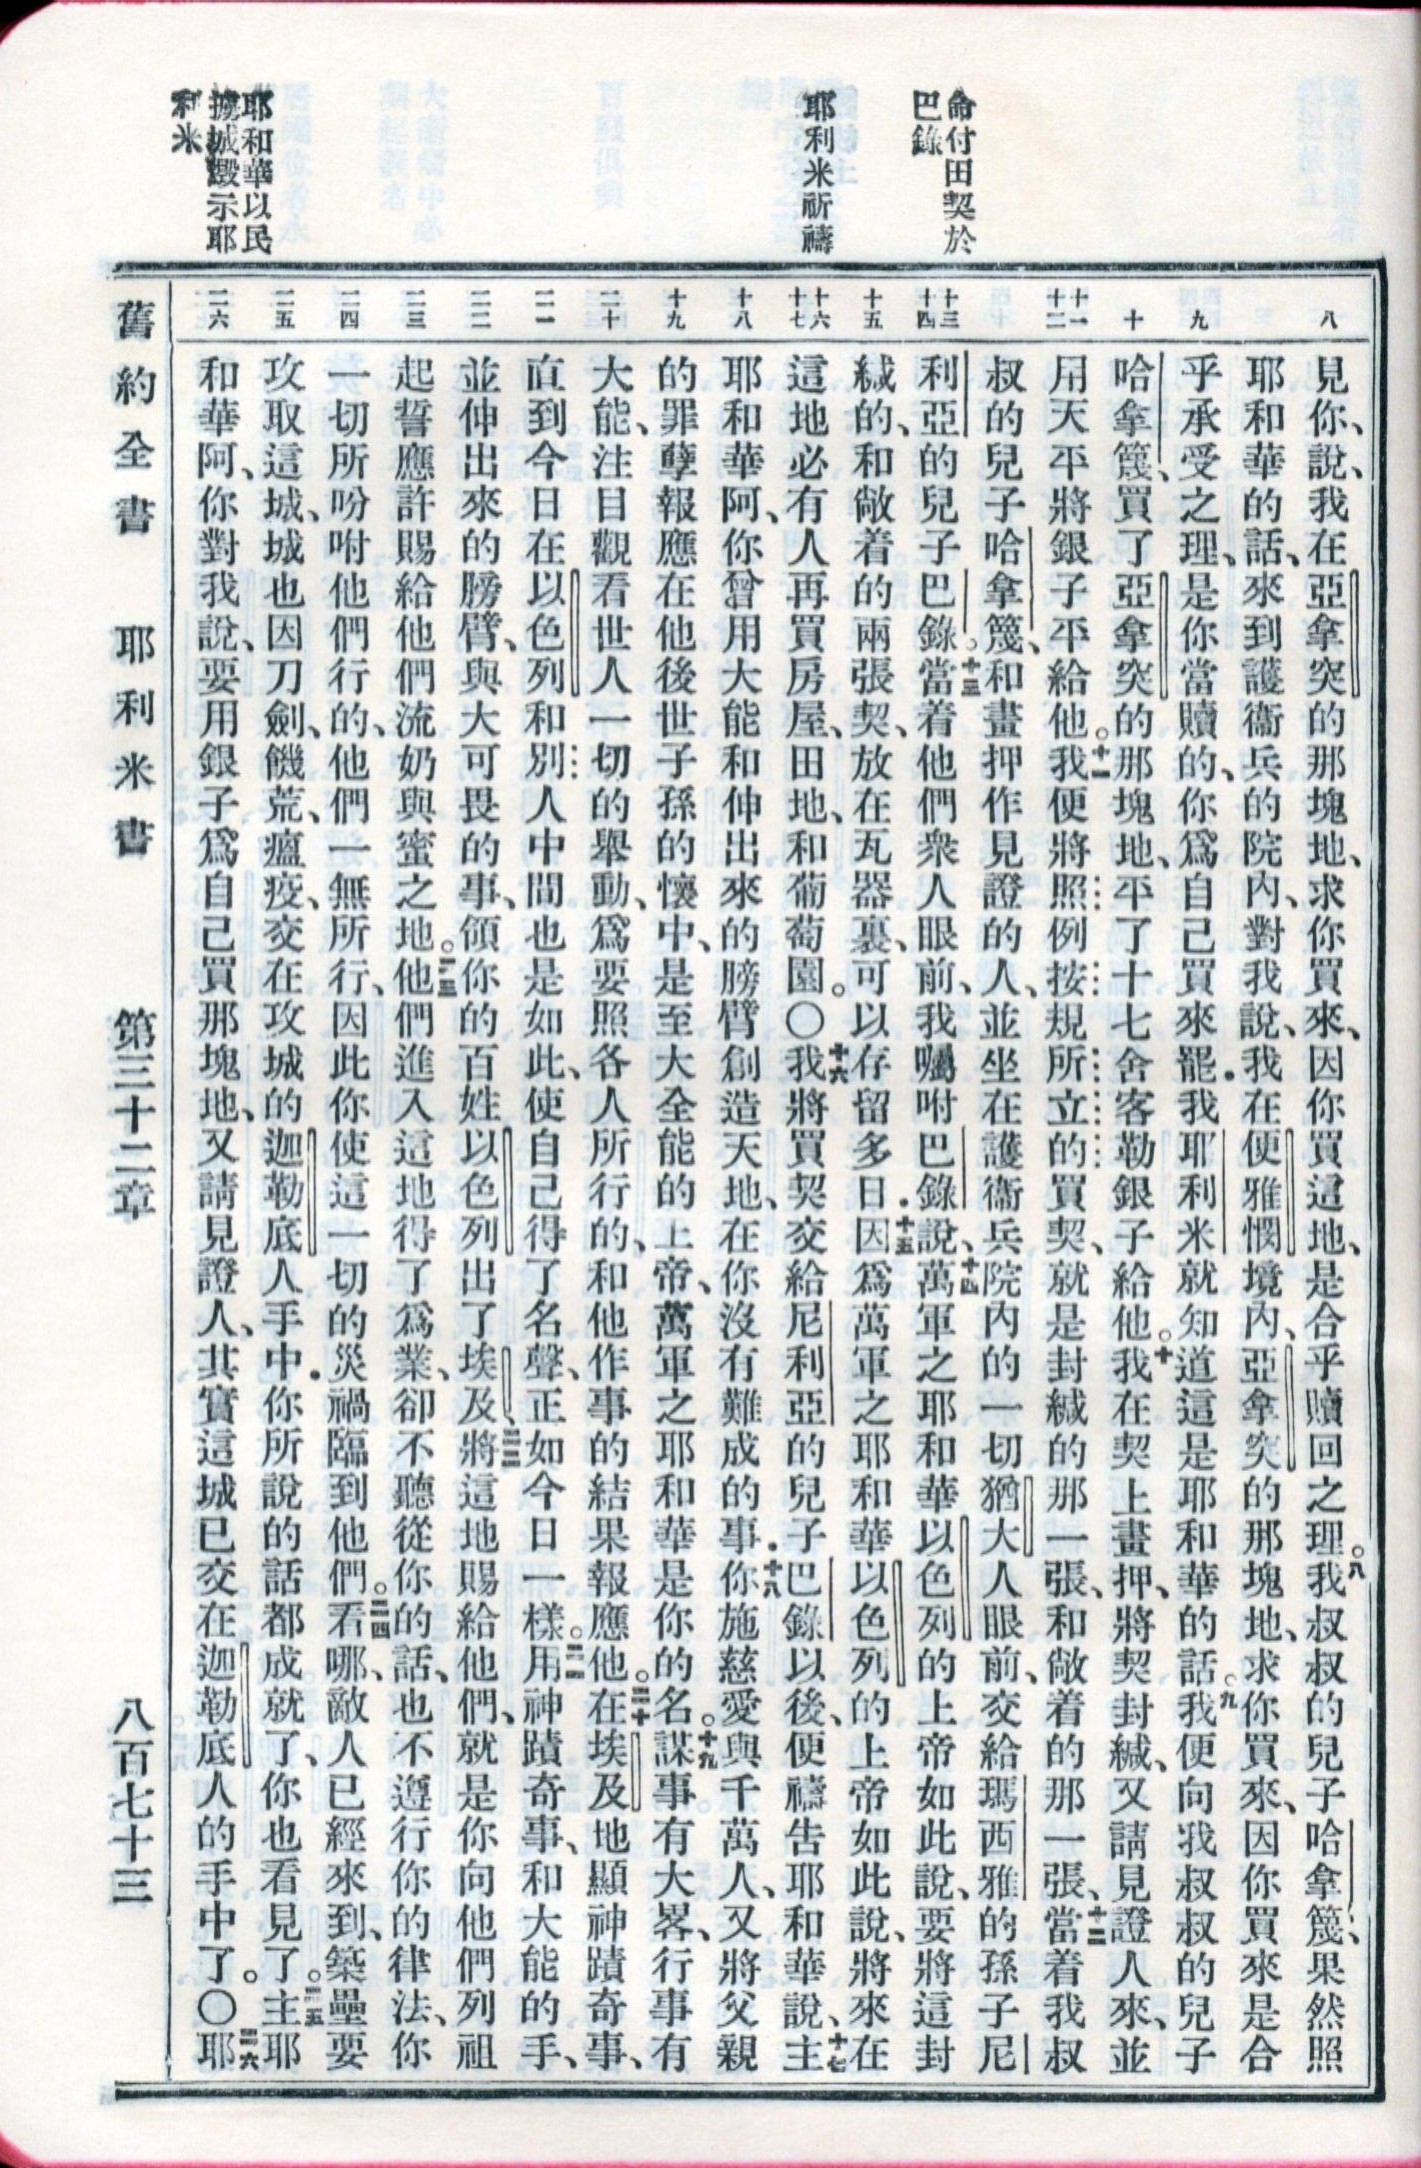 命付田契於
巴錄
耶利米祈禱
耶和華以民
擄城燬示耶
利米
八
九
十
十一
十二
十三
十四
十五
十六
十七
十八
十九
二十
二一
二二
二三
二四
二五
二六
見你、說、我在亞拿突的那塊地、求你買來、因你買這地、是合乎贖回之理。八我叔叔的兒子哈拿篾、果然照
耶和華的話、來到護衞兵的院內、對我說、我在便雅憫境內、亞拿突的那塊地、求你買來、因你買來是合
乎承受之理、是你當贖的、你爲自己買來罷．我耶利米就知道這是耶和華的話。九我便向我叔叔的兒子
哈拿篾、買了亞拿突的那塊地、平了十七舍客勒銀子給他。十我在契上畫押、將契封緘、又請見證人來、並
用天平將銀子平給他。十一我便將照例按規所立的買契、就是封緘的那一張、和敞着的那一張、十二當着我叔
叔的兒子哈拿篾、和畫押作見證的人、並坐在護衞兵院內的一切猶大人眼前、交給瑪西雅的孫子尼
利亞的兒子巴錄。十三當着他們衆人眼前、我囑咐巴錄說、十四萬軍之耶和華以色列的上帝如此說、要將這封
緘的、和敞着的兩張契、放在瓦器裏、可以存留多日．十五因爲萬軍之耶和華以色列的上帝如此說、將來在
這地必有人再買房屋、田地、和葡萄園。〇十六我將買契交給尼利亞的兒子巴錄以後、便禱告耶和華說、十七主
耶和華阿、你曾用大能和伸出來的膀臂創造天地、在你沒有難成的事．十八你施慈愛與千萬人、又將父親
的罪孽報應在他後世子孫的懷中、是至大全能的上帝、萬軍之耶和華是你的名。十九謀事有大畧、行事有
大能、注目觀看世人一切的舉動、爲要照各人所行的、和他作事的結果報應他。二十在埃及地顯神蹟奇事、
直到今日在以色列和別人中間也是如此、使自己得了名聲、正如今日一樣。二一用神蹟奇事、和大能的手、
並伸出來的膀臂、與大可畏的事、領你的百姓以色列出了埃及、二二將這地賜給他們、就是你向他們列祖
起誓應許賜給他們流奶與蜜之地。二三他們進入這地得了爲業、卻不聽從你的話、也不遵行你的律法、你
一切所吩咐他們行的、他們一無所行、因此你使這一切的災禍臨到他們。二四看哪、敵人已經來到、築壘要
攻取這城、城也因刀劍、饑荒、瘟疫、交在攻城的迦勒底人手中．你所說的話都成就了、你也看見了。二五主耶
和華阿、你對我說、要用銀子爲自己買那塊地、又請見證人、其實這城已交在迦勒底人的手中了。〇二六耶
舊約全書　耶利米書　第三十二章　八百七十三